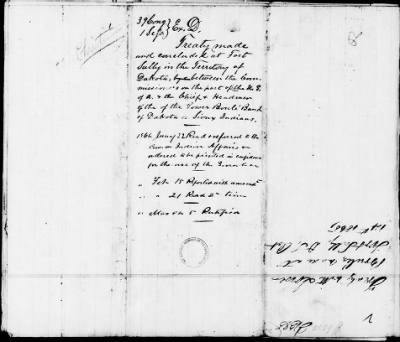 39 Cong } Ex. D.
1 Sess }
Treaty made
and concluded at Fort
Sully in the Territory of
Dakota, by & between the Com
missioners on the part of the U.S.
of A. & the Chiefs & Headmen
of the Lower Brulé Band
of Dakota or Sioux Indians.
1866 Jany 22 Read & referred to the
Com on Indian Affairs &
ordered to be printed in confidence
for the use of the Senate
" Feb 15 Reported with amend
" " 21 Read 2 time
" March 5 Ratified
Treaty with Lower
Brulé
Fort Sully
1865